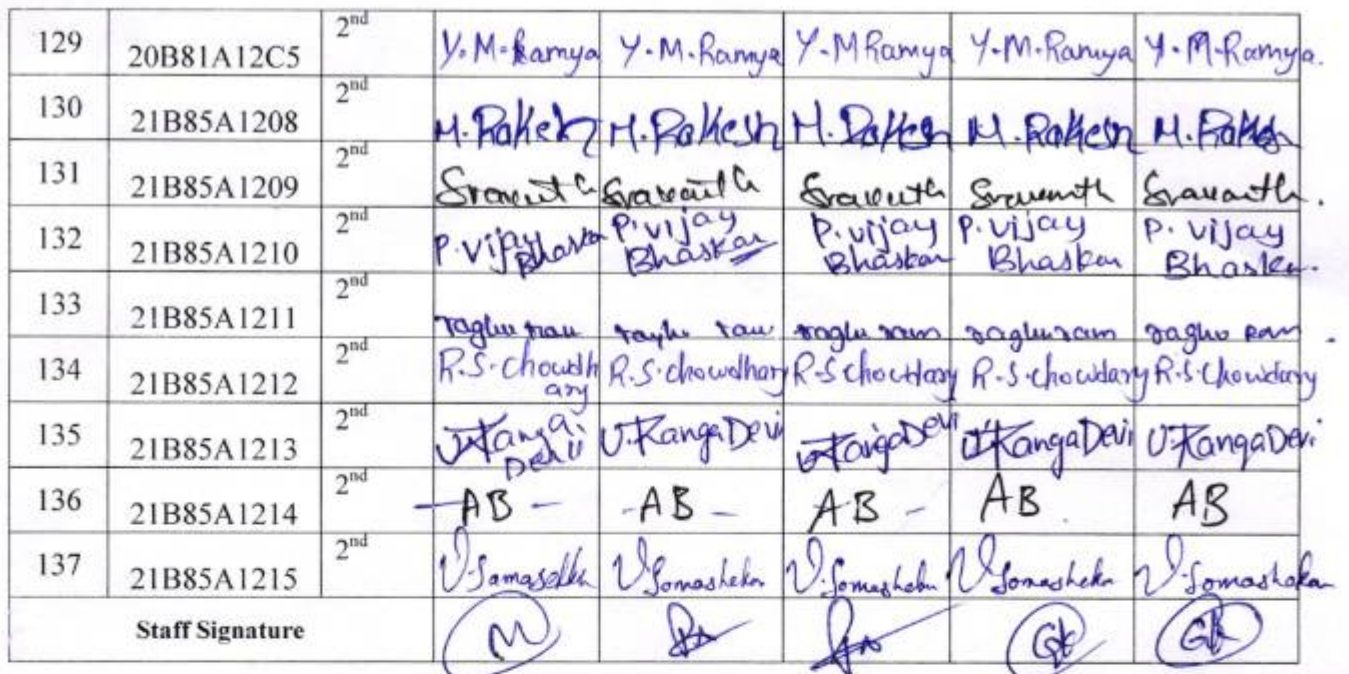 129 20B81A12C5 2nd Y.M.Ramya Y.M.Ramya Y.M Ramya Y.M.Ramya Y.M.Ramya.
130 21B85A1208 2nd M.Rakesh M.Rakesh M.Rakesh M.Rakesh M.Rakesh
131 21B85A1209 2nd Sravanth Sravanth Sravanth Sravanth Sravanth.
132 21B85A1210 2nd P.Vijay P.Vijay P.Vijay P.Vijay P.Vijay
Bhaskar Bhaskar Bhaskar Bhaskar Bhaskar.
133 21B85A1211 2nd raghu ram raghu ram raghu ram raghu ram raghu ram
134 21B85A1212 2nd R.S.Chowdh R.S.chowdhary R.S chowdary R.S.chowdary R.S.Chowdary
ary
135 21B85A1213 2nd U.Ranga U.RangaDevi U.RangaDevi U.RangaDevi U.RangaDevi
Devi
136 21B85A1214 2nd - AB - - AB - AB - AB AB
137 21B85A1215 2nd V.Somashekar V.Somashekar V.Somashekar V.Somashekar
Staff Signature